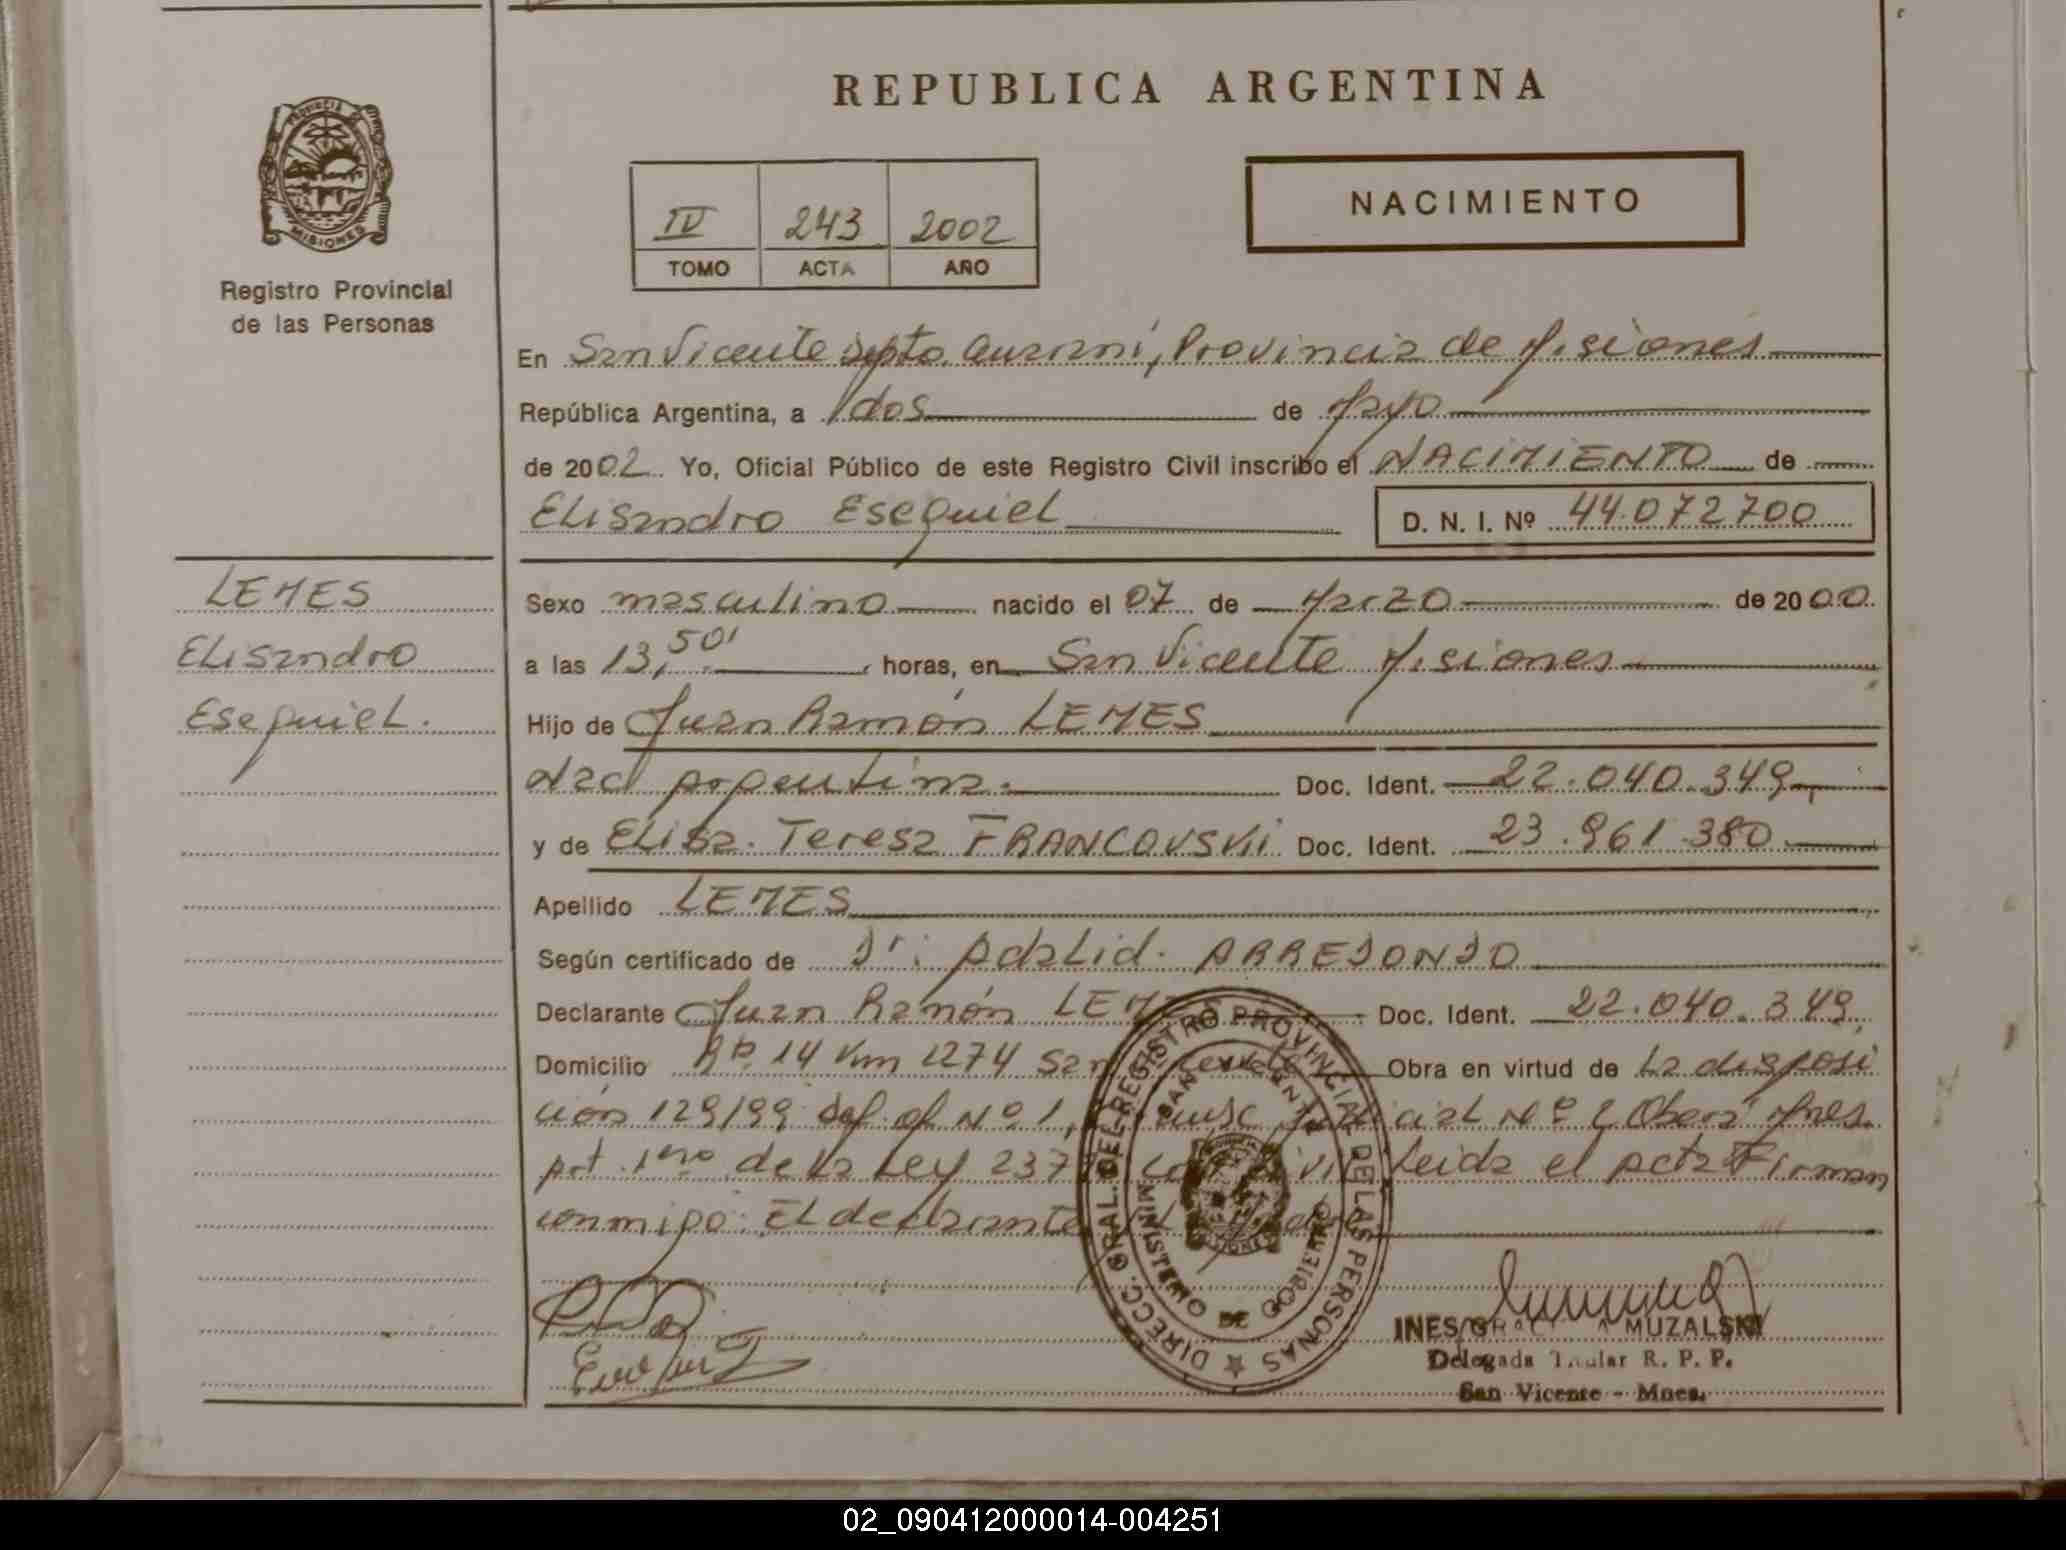 REPUBLICA ARGENTINA
PROVINCIA DE MISIONES
Registro Provincial
de las Personas
IV 243 2002
TOMO ACTA AÑO
NACIMIENTO
En San Vicente Dpto. Guaraní, Provincia de Misiones
República Argentina, a dos de Mayo
de 2002 Yo, Oficial Público de este Registro Civil inscribo el NACIMIENTO de
Elisandro Esequiel D. N. I. Nº 44.072.700
LEMES
Elisandro
Esequiel.
Sexo masculino nacido el 07 de Marzo de 2000
a las 13,50' horas, en San Vicente Misiones
Hijo de Juan Ramón LEMES
Nac Argentina. Doc. Ident. 22.040.349
y de Elisa Teresa FRANCOVSKi Doc. Ident. 23.961.380
Apellido LEMES
Según certificado de Dr: Adalid. ARREDONDO
Declarante Juan Ramón LEMES Doc. Ident. 22.040.349
Domicilio Rta 14 Km 1274 San Vicente Obra en virtud de La disposi
ción 129/99 Def. of Nº 1, Judicial Nº 2 Oberá Mnes.
Art. 1ero de la Ley leida el acta Firman
conmigo: El declarante
DIRECC. GRAL. DEL REGISTRO PROVINCIAL DE LAS PERSONAS
SAN VICENTE
MINISTERIO DE GOBIERNO
INES GRACIELA MUZALSKI
Delegada Titular R. P. P.
San Vicente - Mnes.
02_090412000014-004251